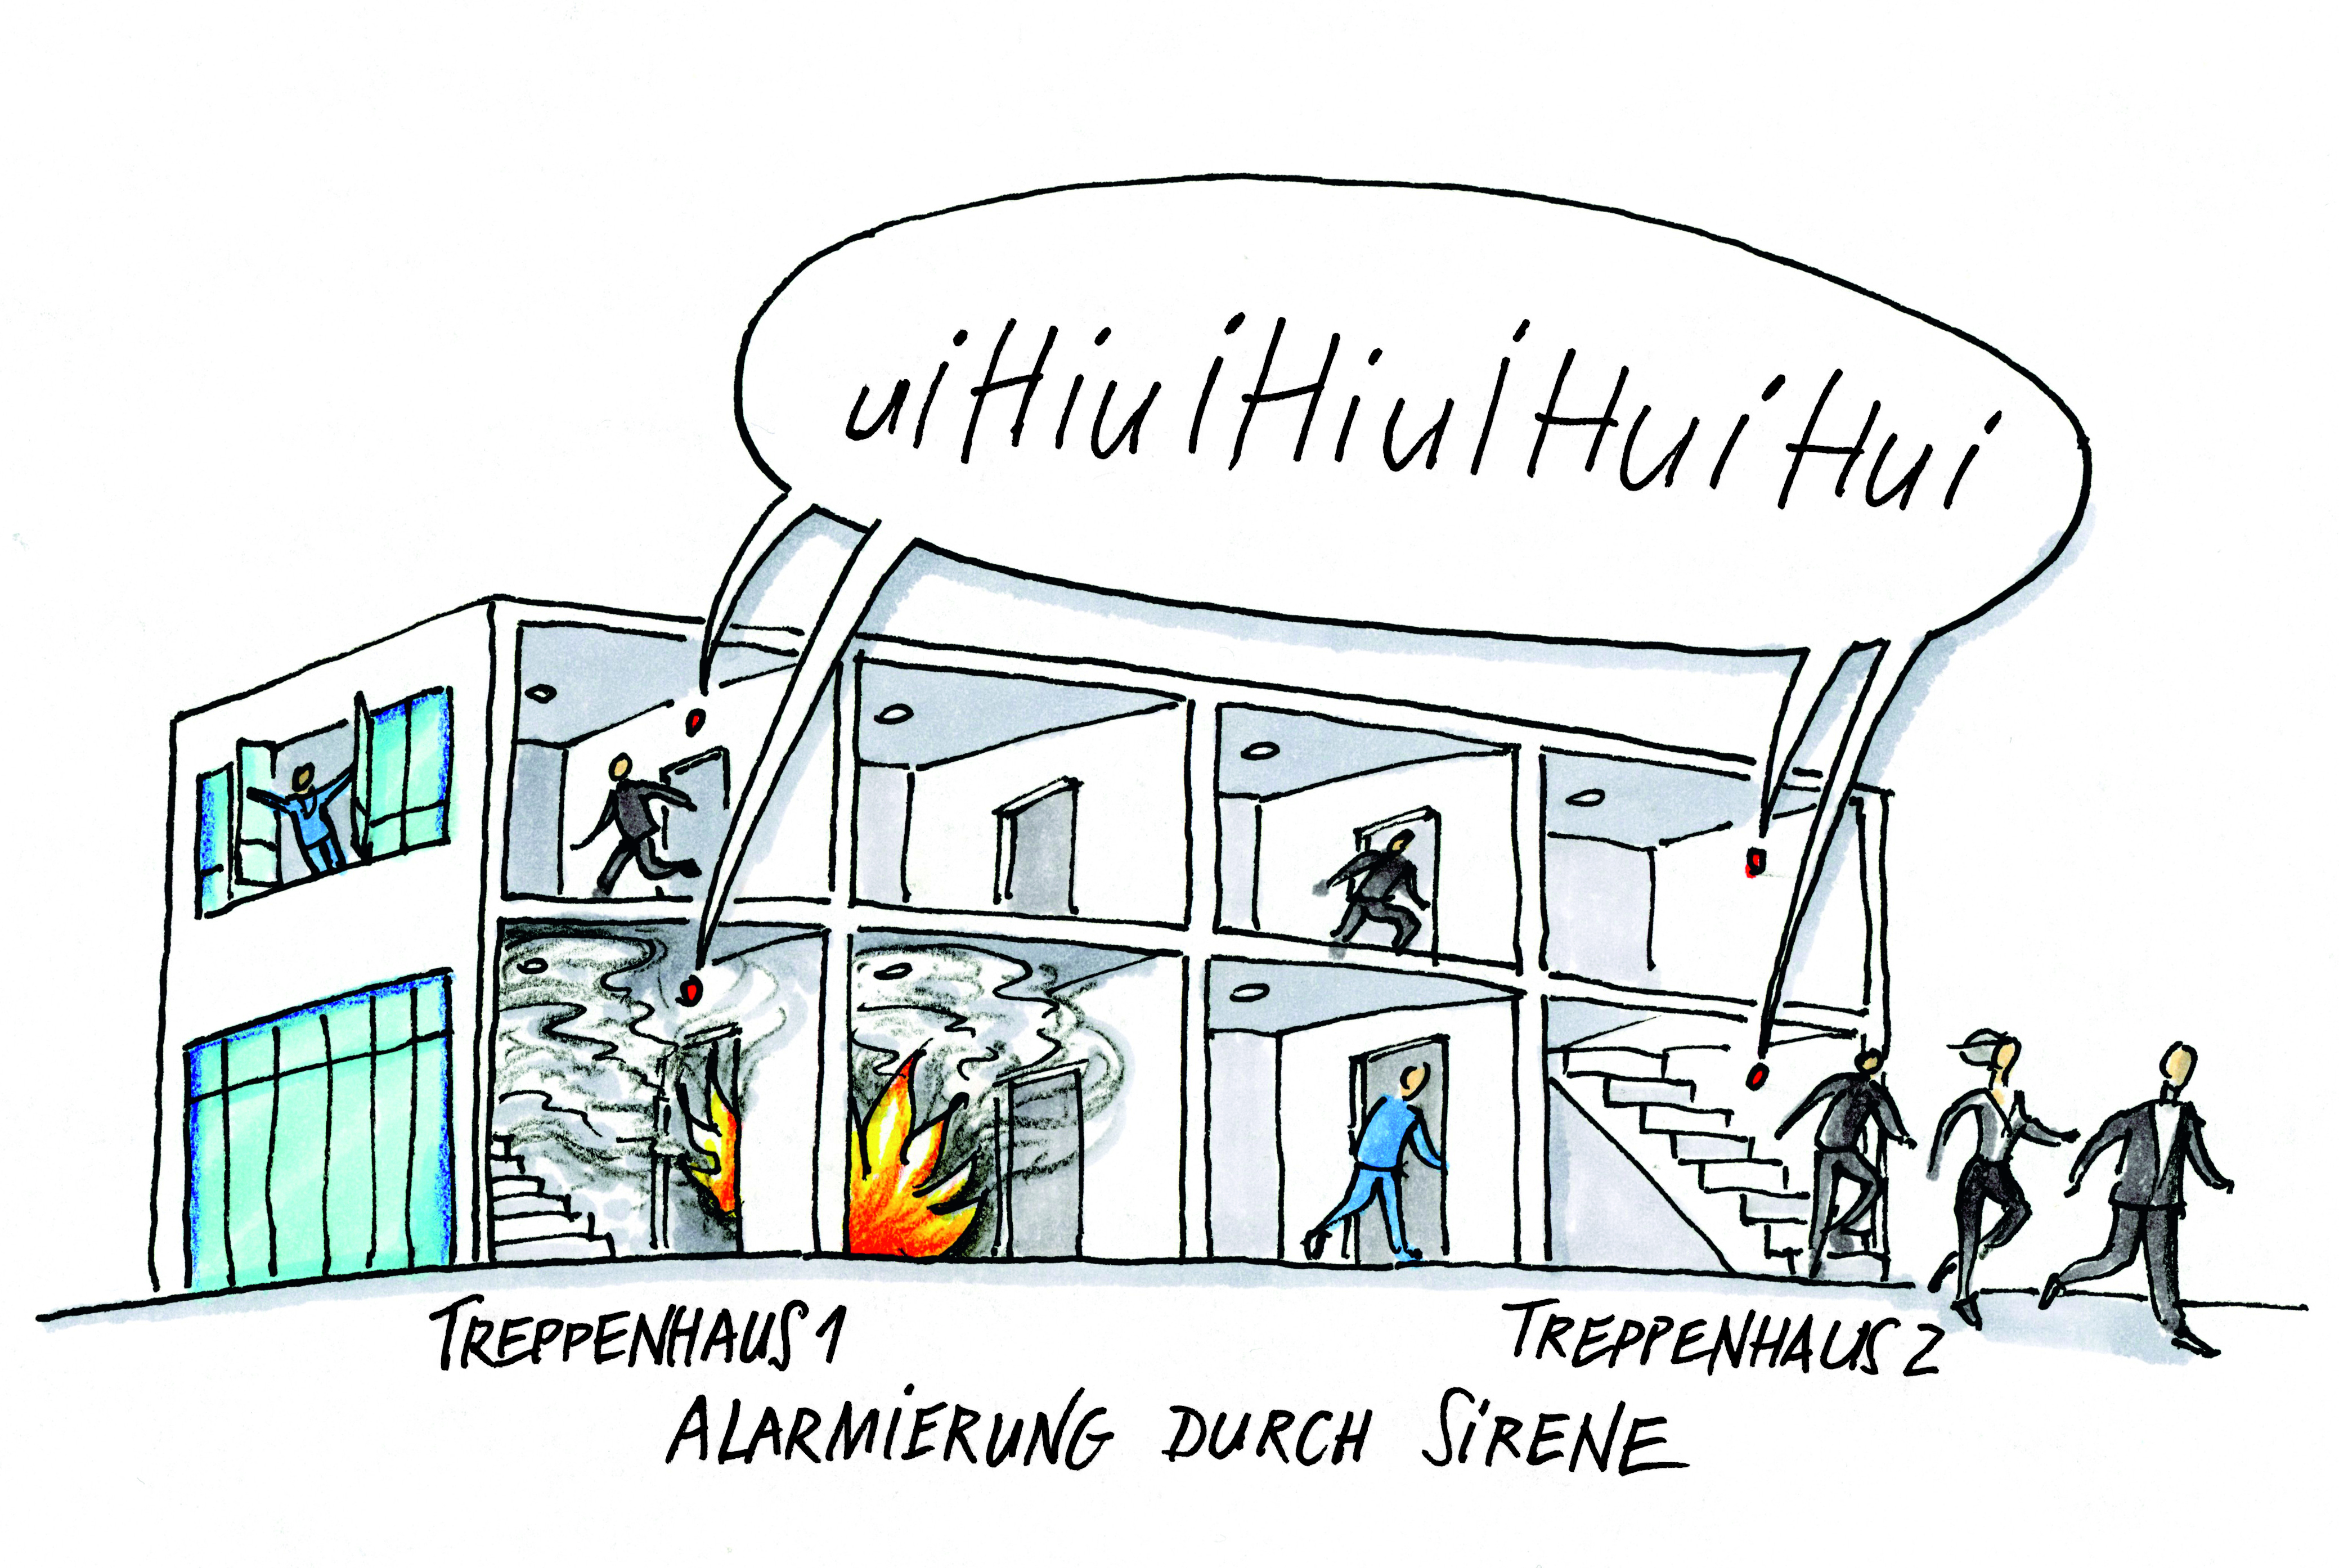 uiHiuiHiuiHuiHui
TREPPENHAUS 1
TREPPENHAUS 2
ALARMIERUNG DURCH SIRENE